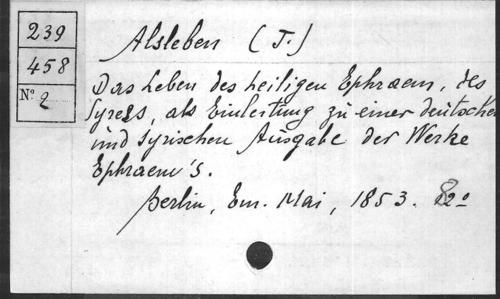 239
458
Nº 2
Alsleben (J.)
Das Leben des heiligen Ephraem, des
Syrers, als Einleitung zu einer deutschen
und syrischen Ausgabe der Werke
Ephraem's.
Berlin, Em. Mai, 1853. 8º